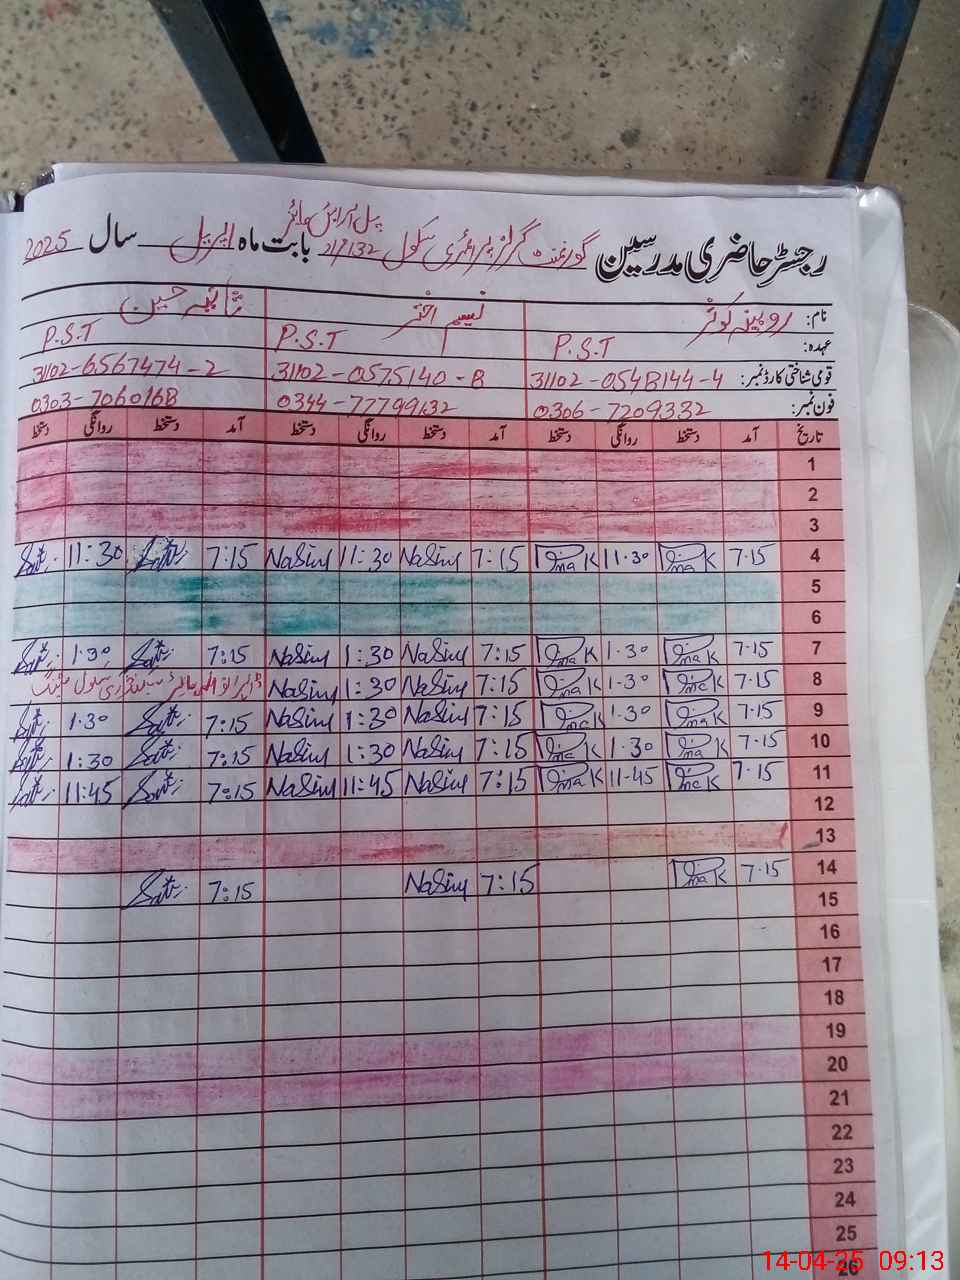 پی ایم آئی وائز
رجسٹر حاضری مدرسین گورنمنٹ گرلز پرائمری سکول 21/1132 بابت ماہ اپریل سال 2025
نام: روبینہ کوثر نسیم اختر حسین
عہدہ: P.S.T P.S.T P.S.T
قومی شناختی کارڈ نمبر: 31102-0548144-4 31102-0575140-8 31102-6567474-2
فون نمبر: 0306-7209332 0344-77799132 0303-7060168
تاریخ آمد دستخط روانگی دستخط آمد دستخط روانگی دستخط آمد دستخط روانگی دستخط
1
2
3
4 7.15 11.30 7:15 NaSim 11:30 NaSim 7:15 11:30
5
6
7 7.15 1.30 7:15 NaSim 1:30 NaSim 7:15 1.30
8 7.15 1.30 7:15 NaSim 1:30 NaSim
9 7.15 1.30 7:15 NaSim 1:30 NaSim 7:15 1.30
10 7.15 1.30 7:15 NaSim 1:30 NaSim 7:15 1:30
11 7.15 11-45 7:15 NaSim 11:45 NaSim 7:15 11:45
12
13
14 7.15 7:15 NaSim 7:15
15
16
17
18
19
20
21
22
23
24
25
26
14-04-25 09:13